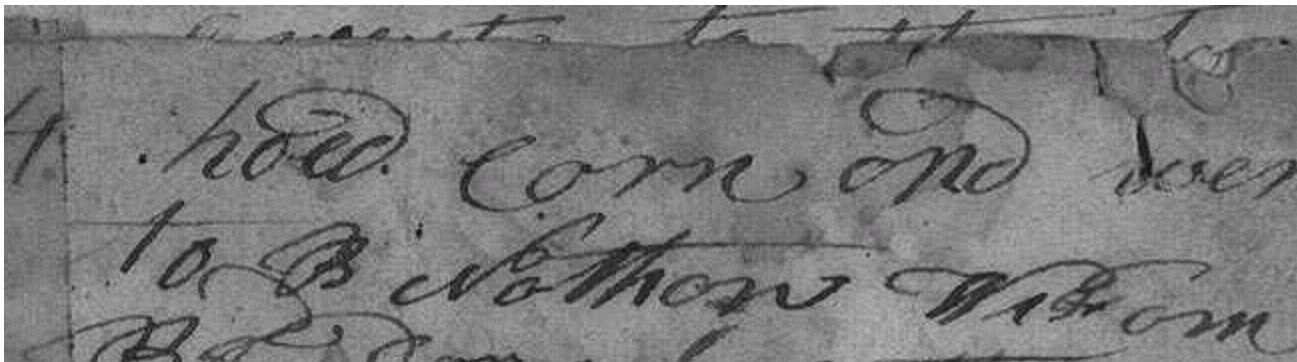 4 hoed Corn and wen
to B Nathan Wixom